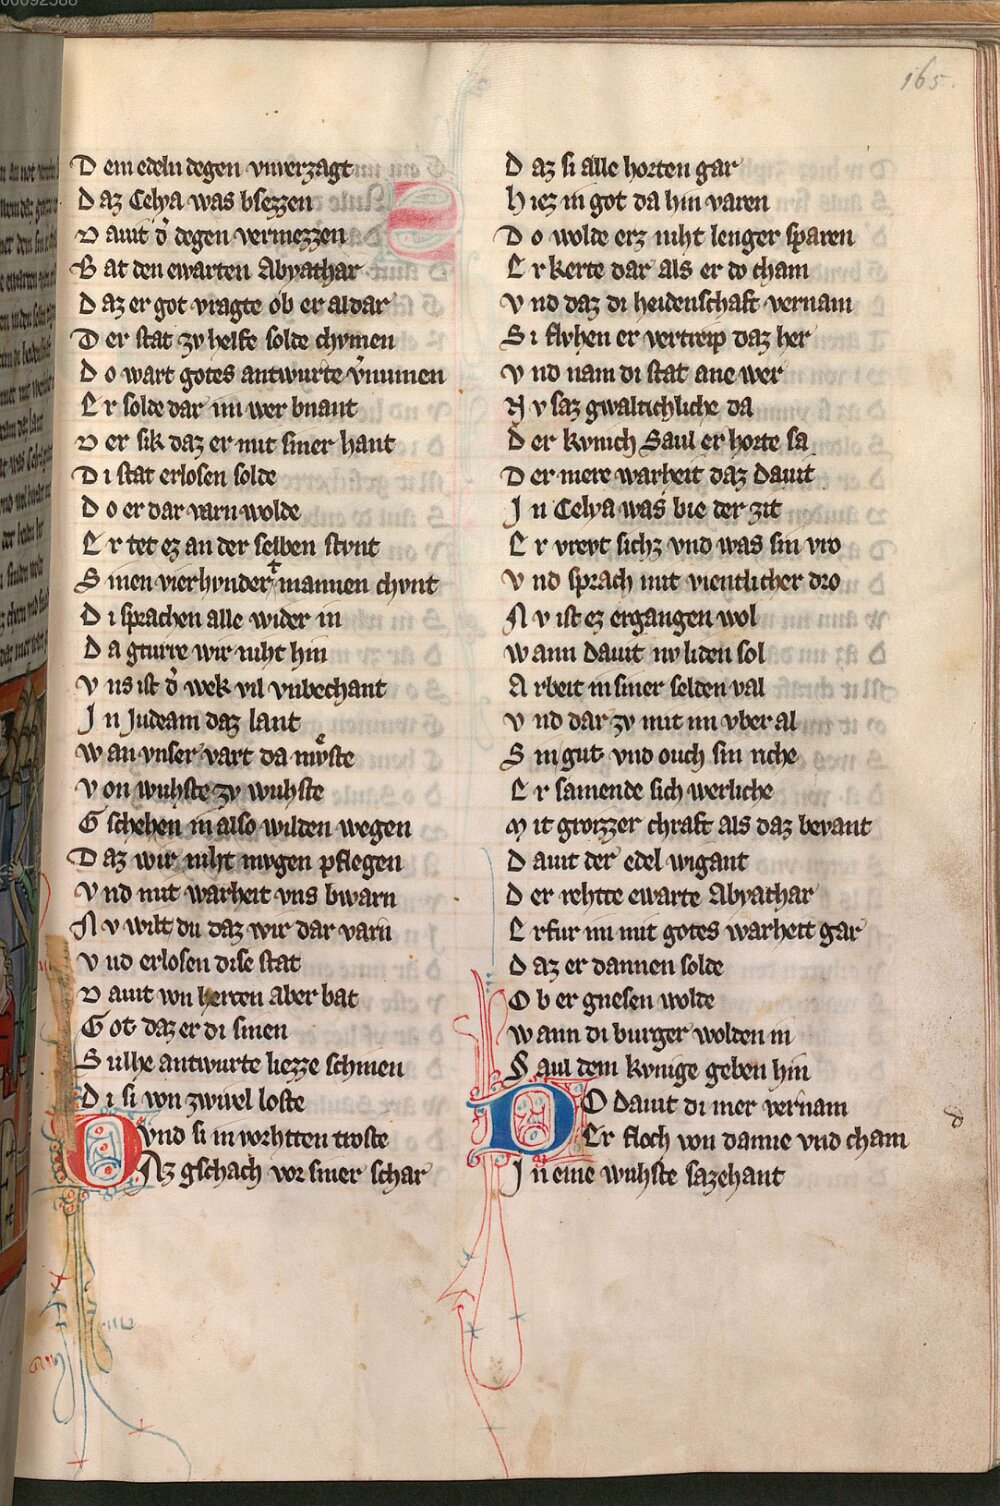 165.
D em edeln degen vnverzagt
D az Ceẏla was bsezzen
D auit d̓ degen vermezzen
B at den ewarten Abyathar
D az er got vragte ob er aldar
D er stat zv helfe solde chvmen
D o wart gotes antwurte v̓numen
E r solde dar im wer bnant
D er sik daz er mit siner hant
D i stat erlosen solde
D o er dar varn wolde
E r tet ez an der selben stvnt
S inen vierhvndert mannen chvnt
D i sprachen alle wider in
D a gturre wir niht hin
V ns ist d̓ wek vil vnbechant
J n Judeam daz lant
W an vnser vart da mvͦste
V on wuhste zv wuhste
G schehen in also wilden wegen
D az wir niht mvgen pflegen
V nd mit warheit vns bwarn
N v wilt du daz wir dar varn
V nd erlosen dise stat
D auit von herten aber bat
G ot daz er di sinen
S ulhe antwurte liezze schinen
D i si von zwivel loste
vnd si in vorhtten troste
DAz gschach vor siner schar
D az si alle horten gar
H iez in got da hin varen
D o wolde erz niht lenger sparen
E r kerte dar als er do cham
V nd daz di heidenschaft vernam
S i flvhen er vertreip daz her
V nd nam di stat ane wer
N v saz gwaltichliche da
D er kvnich Saul er horte sa
D er mere warheit daz Dauit
J n Celya was bie der zit
E r vrevt sichz vnd was sin vro
V nd sprach mit vientlicher dro
N v ist ez ergangen wol
W ann Dauit nv liden sol
A rbeit in siner selden val
V nd dar zv mit im vber al
S in gut vnd ouch sin riche
E r samende sich werliche
M it grozzer chraft als daz bevant
D auit der edel wigant
D er rehtte ewarte Abyathar
E rfur im mit gotes warheit gar
D az er dannen solde
O b er gnesen wolde
W ann di burger wolden in
S aul dem kvnige geben hin
DO Dauit di mer vernam
Er floch von danne vnd cham
J n eine wuhste sazehant